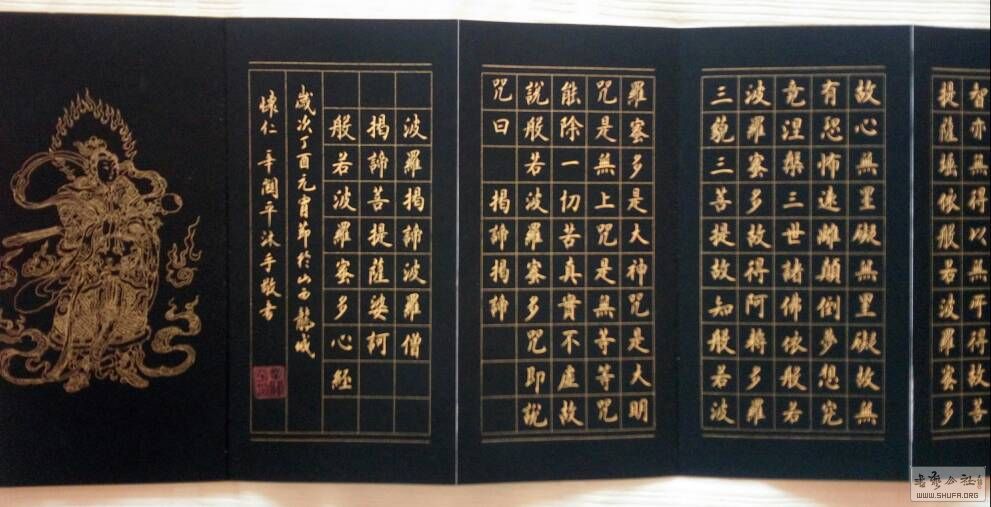 智亦無得以無所得故菩
提薩埵依般若波羅蜜多
故心無罣礙無罣礙故無
有恐怖遠離顛倒夢想究
竟涅槃三世諸佛依般若
波羅蜜多故得阿耨多羅
三藐三菩提故知般若波
羅蜜多是大神咒是大明
咒是無上咒是無等等咒
能除一切苦真實不虛故
說般若波羅蜜多咒即說
咒曰 揭諦揭諦
波羅揭諦波羅僧
揭諦菩提薩婆訶
般若波羅蜜多心經
歲次丁酉元宵節於山西龍城
懷仁 辛閣平沐手敬書
WWW.SHUFA.ORG